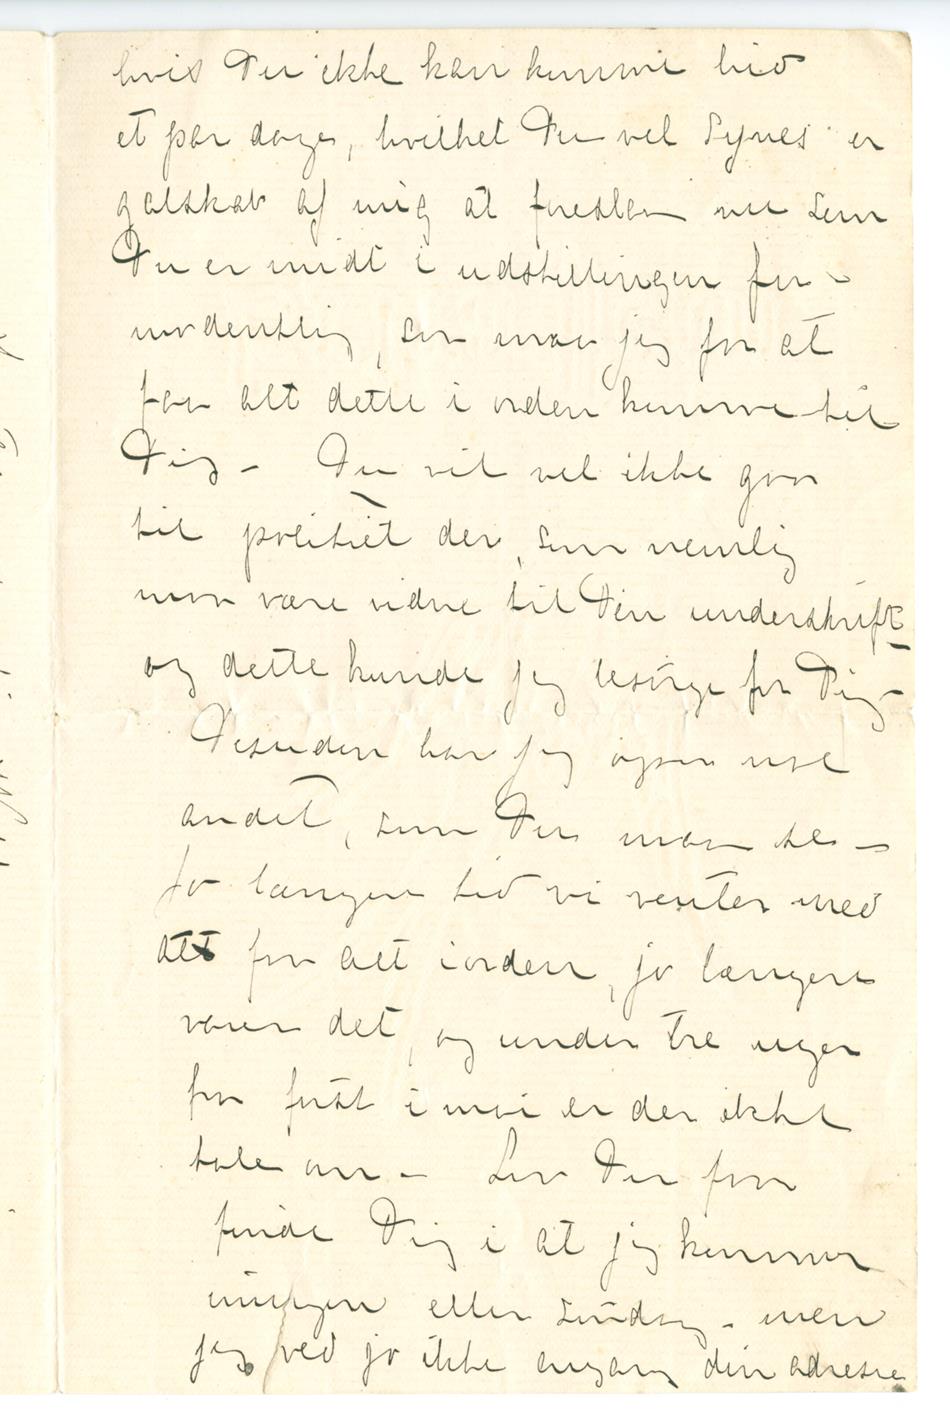 hvis Du ikke kan komme hid
et par dage, hvilket Du vel synes er
galskab af mig at foreslaa nu som
Du er midt i udstillingen for-
modentlig, saa maa jeg for at
faa alt dette i orden komme til
Dig – Du vil vel ikke gaa
til politiet der, som nemlig
maa være vidne til Din underskrift –
og dette kunde jeg besørge for Dig –
Desuden har jeg ogsaa noe
andet, som Du maa se –
Jo længere tid vi venter med
att faa alt i orden, jo længere
varer det, og under tre uger
fra først i mai er der ikke
tale om – Saa Du faar
finde Dig i at jeg kommer
imorgen eller søndag – men
jeg ved jo ikke engang din adresse